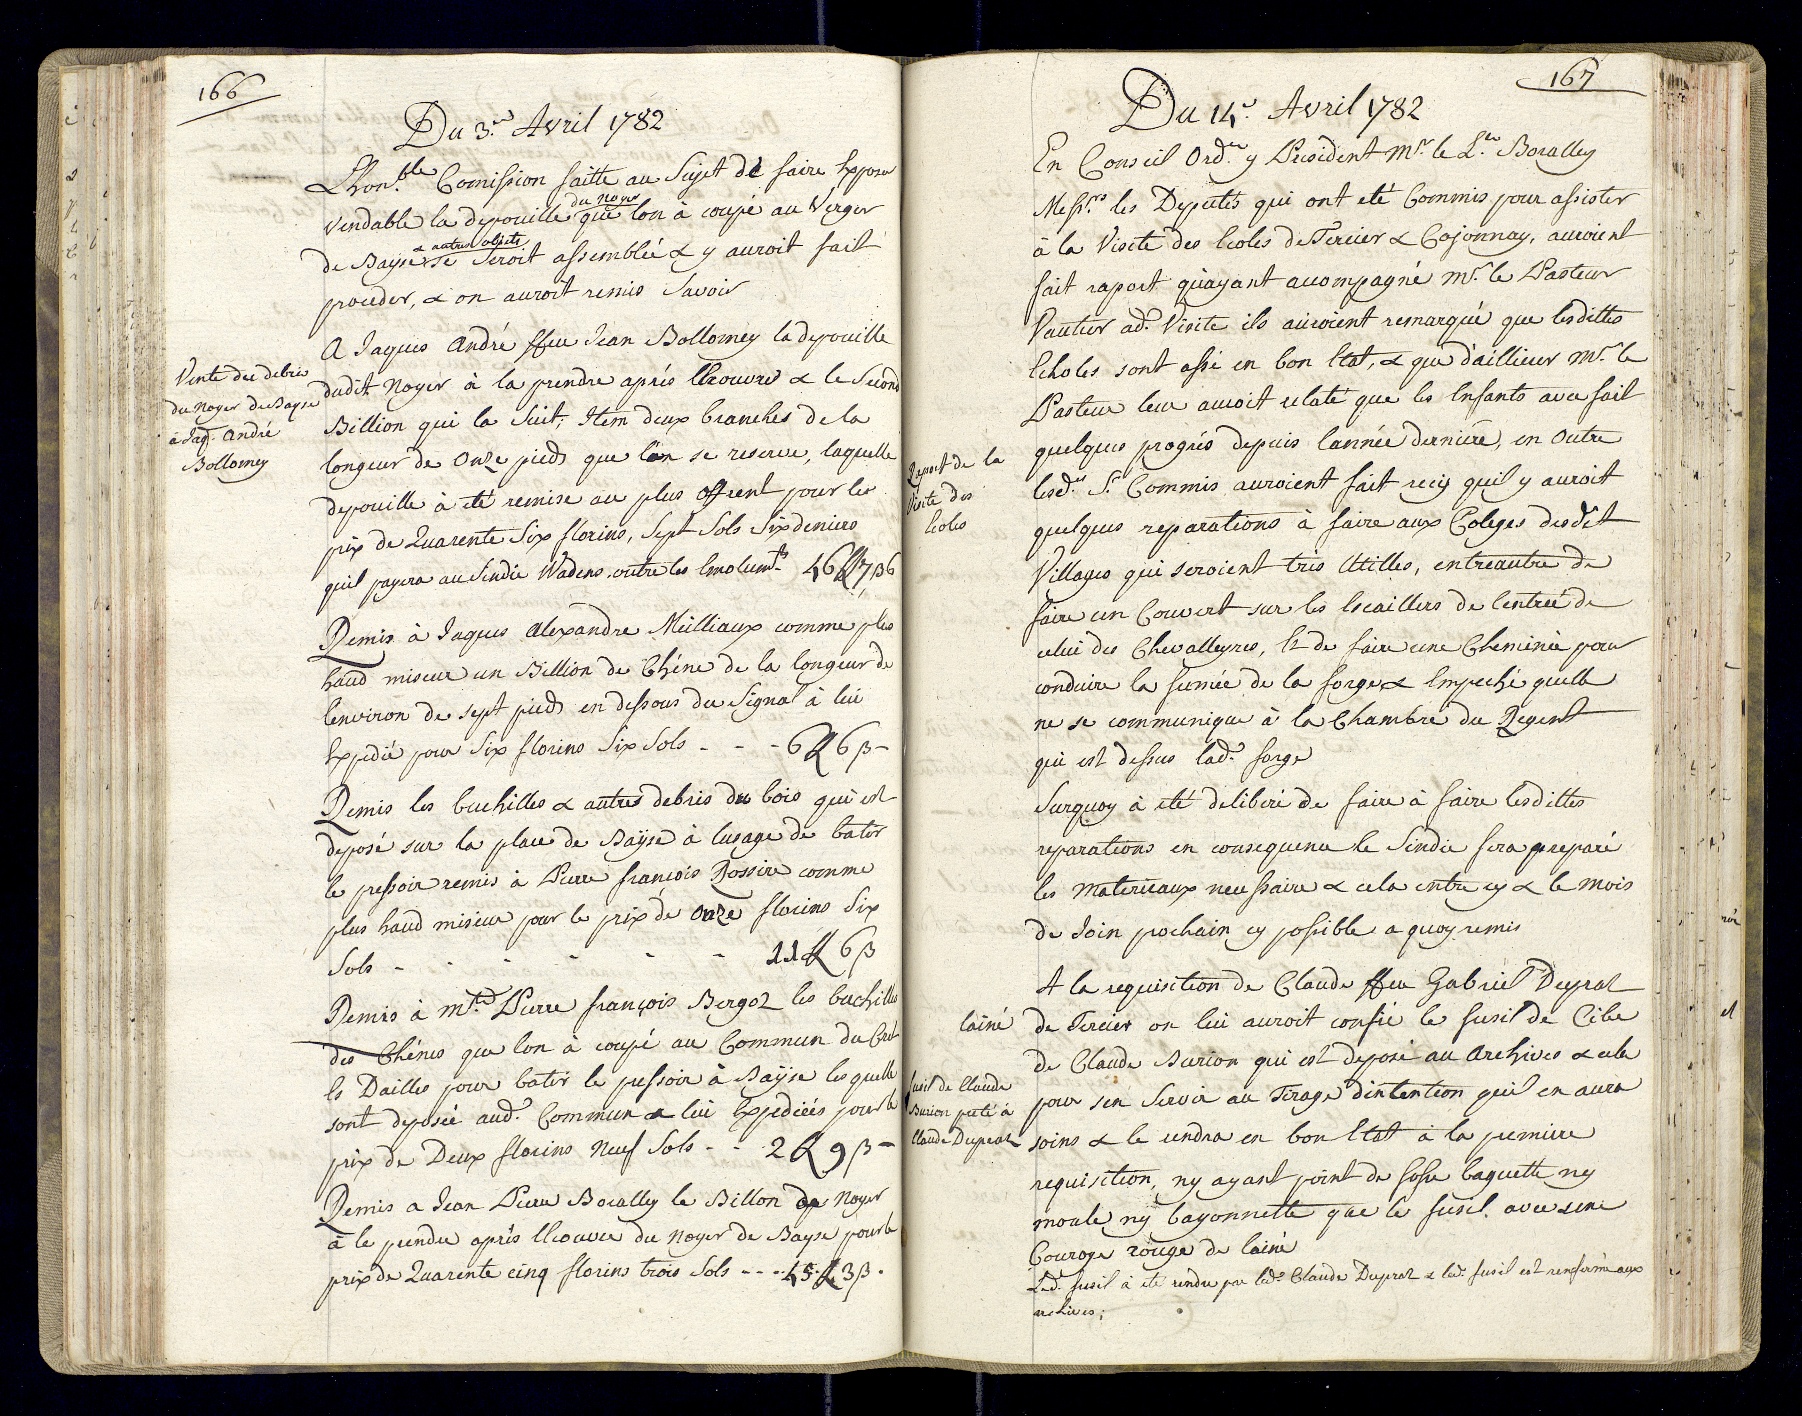 166
Du 3.e Avril 1782
L'hon.ble Comission faitte au Sujet de faire Exposer
du Noyer
vendable la depouille que lon à coupé au Verger
& autres objets
de Bayse se seroit assemblée & y auroit fait
proceder, & on auroit remis Savoir
A Jaques André ffeu Jean Bollomey la depouille
Vente des debris
dudit Noyer à la prendre aprés l'Ecouvre & le Second
du Noyer de Bayse
Billion qui la Suit; Item deux branches de la
à Jaq. André
Bollomey
longeur de Onze pieds que l'on se reserve, laquelle
depouille à eté remise au plus offrent pour les
prix de Quarente Six florins, Sept Sols Six deniers
quil payera au Sindic Wadens outre les Emolum.ts 46 ff 7 ß 6
Remis à Jaques Alexandre Milliaux comme plus
haud miseur un Billion de Chéne de la longeur de
lenviron de sept pieds en dessous du Signal à lui
Expedié pour Six florins Six Sols - - - 6 ff 6 ß -
Remis les buchilles & autres debris du bois qui est
deposé sur la place de Bayse à lusage de batir
le pressoir remis à Pierre françois Rossire comme
plus haud miseur pour le prix de Onze florins Six
Sols - - - - - - 11 ff 6 ß
Remis à m.tre Pierre françois Bergoz les buchilles
des Chénes que lon à coupé au Commun du Cret
Es Dailles pour batir le pressoir à Bayse lesquelle
sont deposée aud.t Commun & lui Expediées pour le
prix de Deux florins Neuf Sols - - 2 ff 9 ß -
Remis a Jean Pierre Boralley le Billon de Noyer
à le prendre aprés l'Ecouvre du Noyer de Bayse pour le
prix de Quarente cinq florins trois Sols - - - 45 ff 3 ß .
167
Du 14.e Avril 1782
En Conseil Ord.re y President M.r le L.nt Boralley
Mess.rs les Deputés qui ont eté Commis pour assister
à la Visite des Ecoles de Tercier & Cojonnay, auroient
fait raport qu'ayant accompagné M.r le Pasteur
Vautier ad.e Visite ils auroient remarqué que lesdittes
Echoles sont assé en bon Etat, & que d'aillieur M.r le
Pasteur leur auroit relaté que les Enfants avoit fait
quelques progrés depuis lannée derniére, en Outre
Raport de la
Visite des
Ecoles
lesd.ts S.rs Commis auroient fait recis quil y auroit
quelques reparations à faire aux Coleges desdit
Villages qui seroient trés Utilles, entreautre de
faire un Couvert sur les Escailliers de lentrée de
celui des Chevalleyres, Et de faire une Cheminée pour
conduire la fumée de la forge & Empeché quelle
ne se communique à la Chambre du Regent
qui est dessus lad.e forge
Surquoy à eté deliberé de faire à faire lesdittes
reparations en consequence le Sindic fera preparé
les Materiaux necessaire & cela entre cy & le mois
de Join prochain cy possible a quoy remis
A la requisition de Claude ffeu Gabriel Dupraz
lainé
de Tercier on lui auroit confié le fusil de Cibe
de Claude Burion qui est deposé au Archives & cela
fusil de Claude
Burion preté à
Claude Dupraz
pour sen Servir au Tirage d'intention quil en aura
soins & le rendra en bon Etat à la premiere
requisition, ny ayant point de fosse baguette ny
moule ny bayonnette que le fusil avec une
Couroye rouge de lainé
Led.t fusil à eté rendu par led.t Claude Dupraz & led.t fusil est renfermé aux
archives;